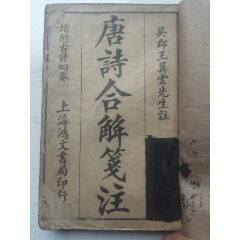 吳郡王翼雲先生註
唐詩合解箋注
增附古詩四卷
上海鴻文書局印行